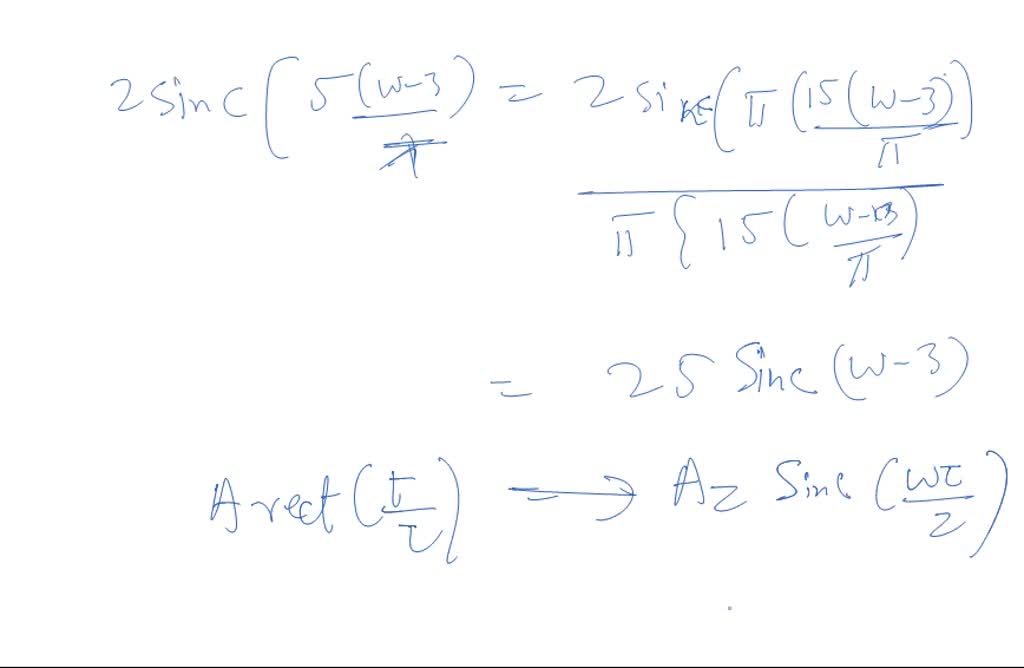 2 sinc ( 5 (w-3) / π ) = 2 sin ( π ( 15 (w-3) ) / π )
π { 15 ( w-3 / π )
= 25 Sinc (w-3)
A rect ( t / τ ) → Az Sinc ( wτ / 2 )